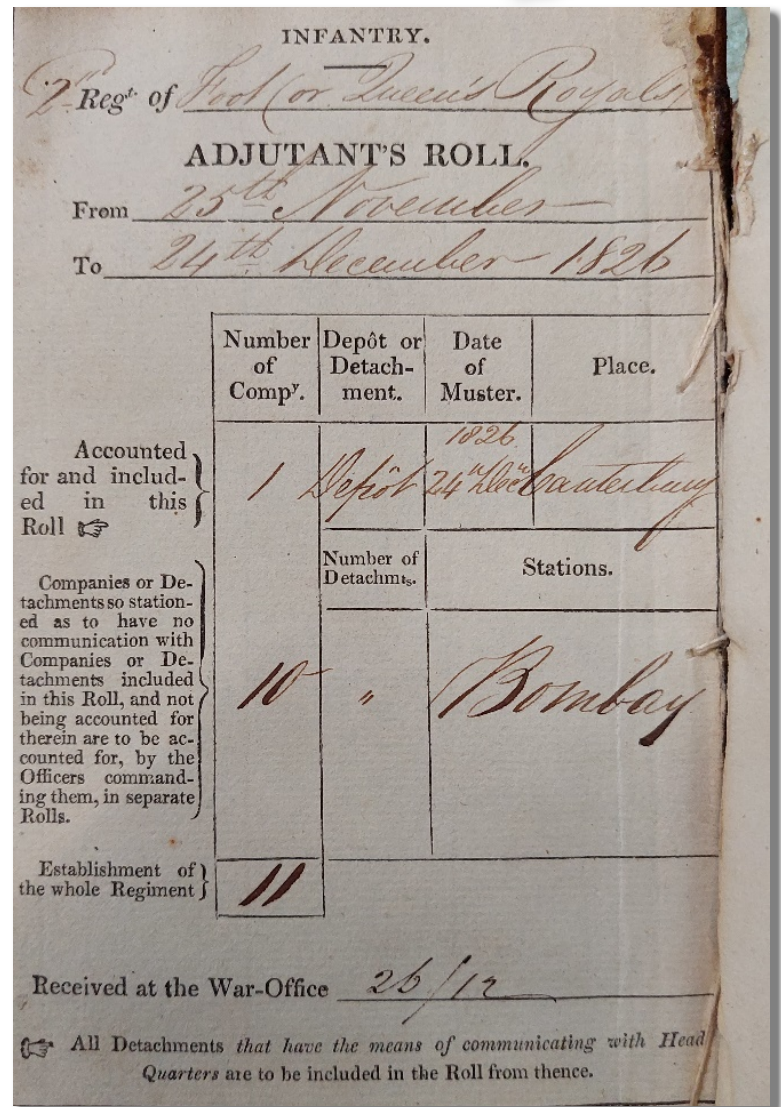 INFANTRY.
2nd Regt. of Foot (or Queen's Royals)
ADJUTANT'S ROLL.
From 25th November
To 24th December 1826
Number of Compy.
Depôt or Detach-ment.
Date of Muster.
Place.
Accounted
for and includ-
ed in this
Roll ☞
1 Depôt 1826 24th Decr Canterbury
Number of Detachmts.
Stations.
Companies or De-
tachments so station-
ed as to have no
communication with
Companies or De-
tachments included
in this Roll, and not
being accounted for
therein are to be ac-
counted for, by the
Officers command-
ing them, in separate
Rolls.
10 " Bombay
Establishment of
the whole Regiment
11
Received at the War-Office 26/12
☞ All Detachments that have the means of communicating with Head
Quarters are to be included in the Roll from thence.